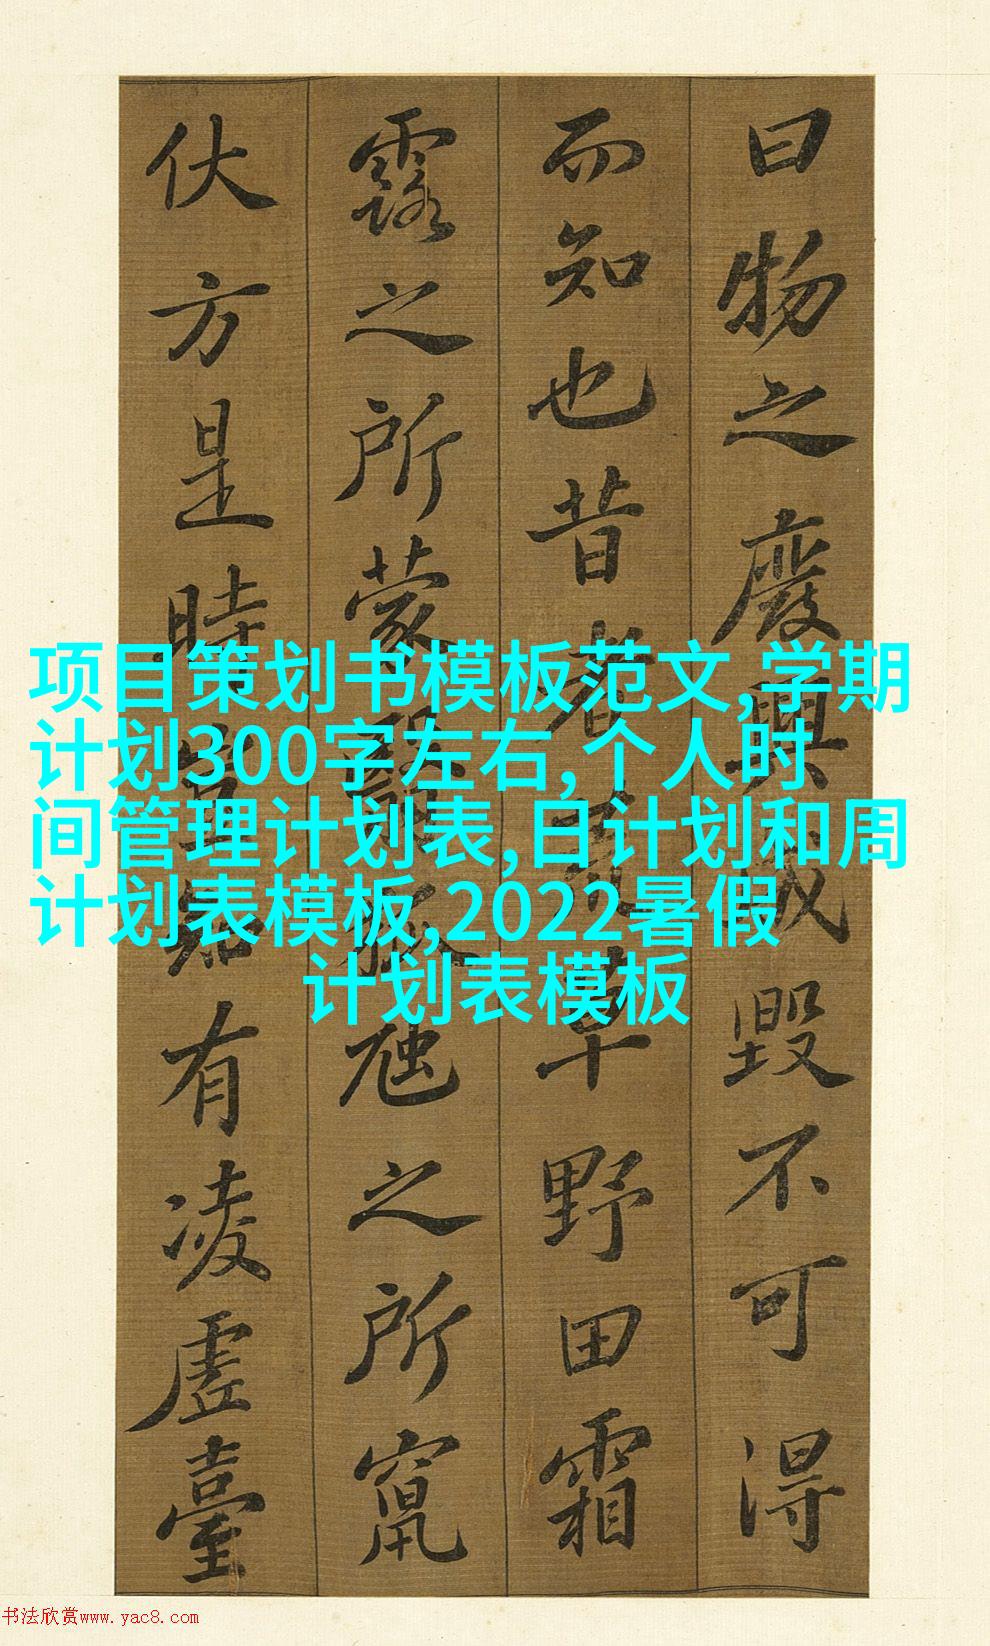 曰物之廢興成毀不可得
而知也昔者荒草野田霜
露之所蒙翳狐虺之所竄
伏方是時豈知有凌虛臺
项目策划书模板范文,学期
计划300字左右,个人时
间管理计划表,日计划和周
计划表模板,2022暑假
计划表模板
书法欣赏www.yac8.com